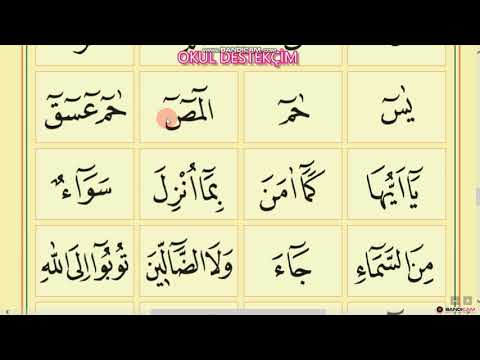 www.BANDICAM.com
OKUL DESTEKÇİM
يٰسٓ حٰمٓ الٓمٓصٓ حٰمٓ عٓسٓقٓ
يَٓا اَيُّهَا كَمَٓا اٰمَنَ بِمَٓا اُنْزِلَ سَوَٓاءٌ
مِنَ السَّمَٓاءِ جَٓاءَ وَلَا الضَّٓالّ۪ينَ تُوبُٓوا اِلَى اللّٰهِ
BANDICAM